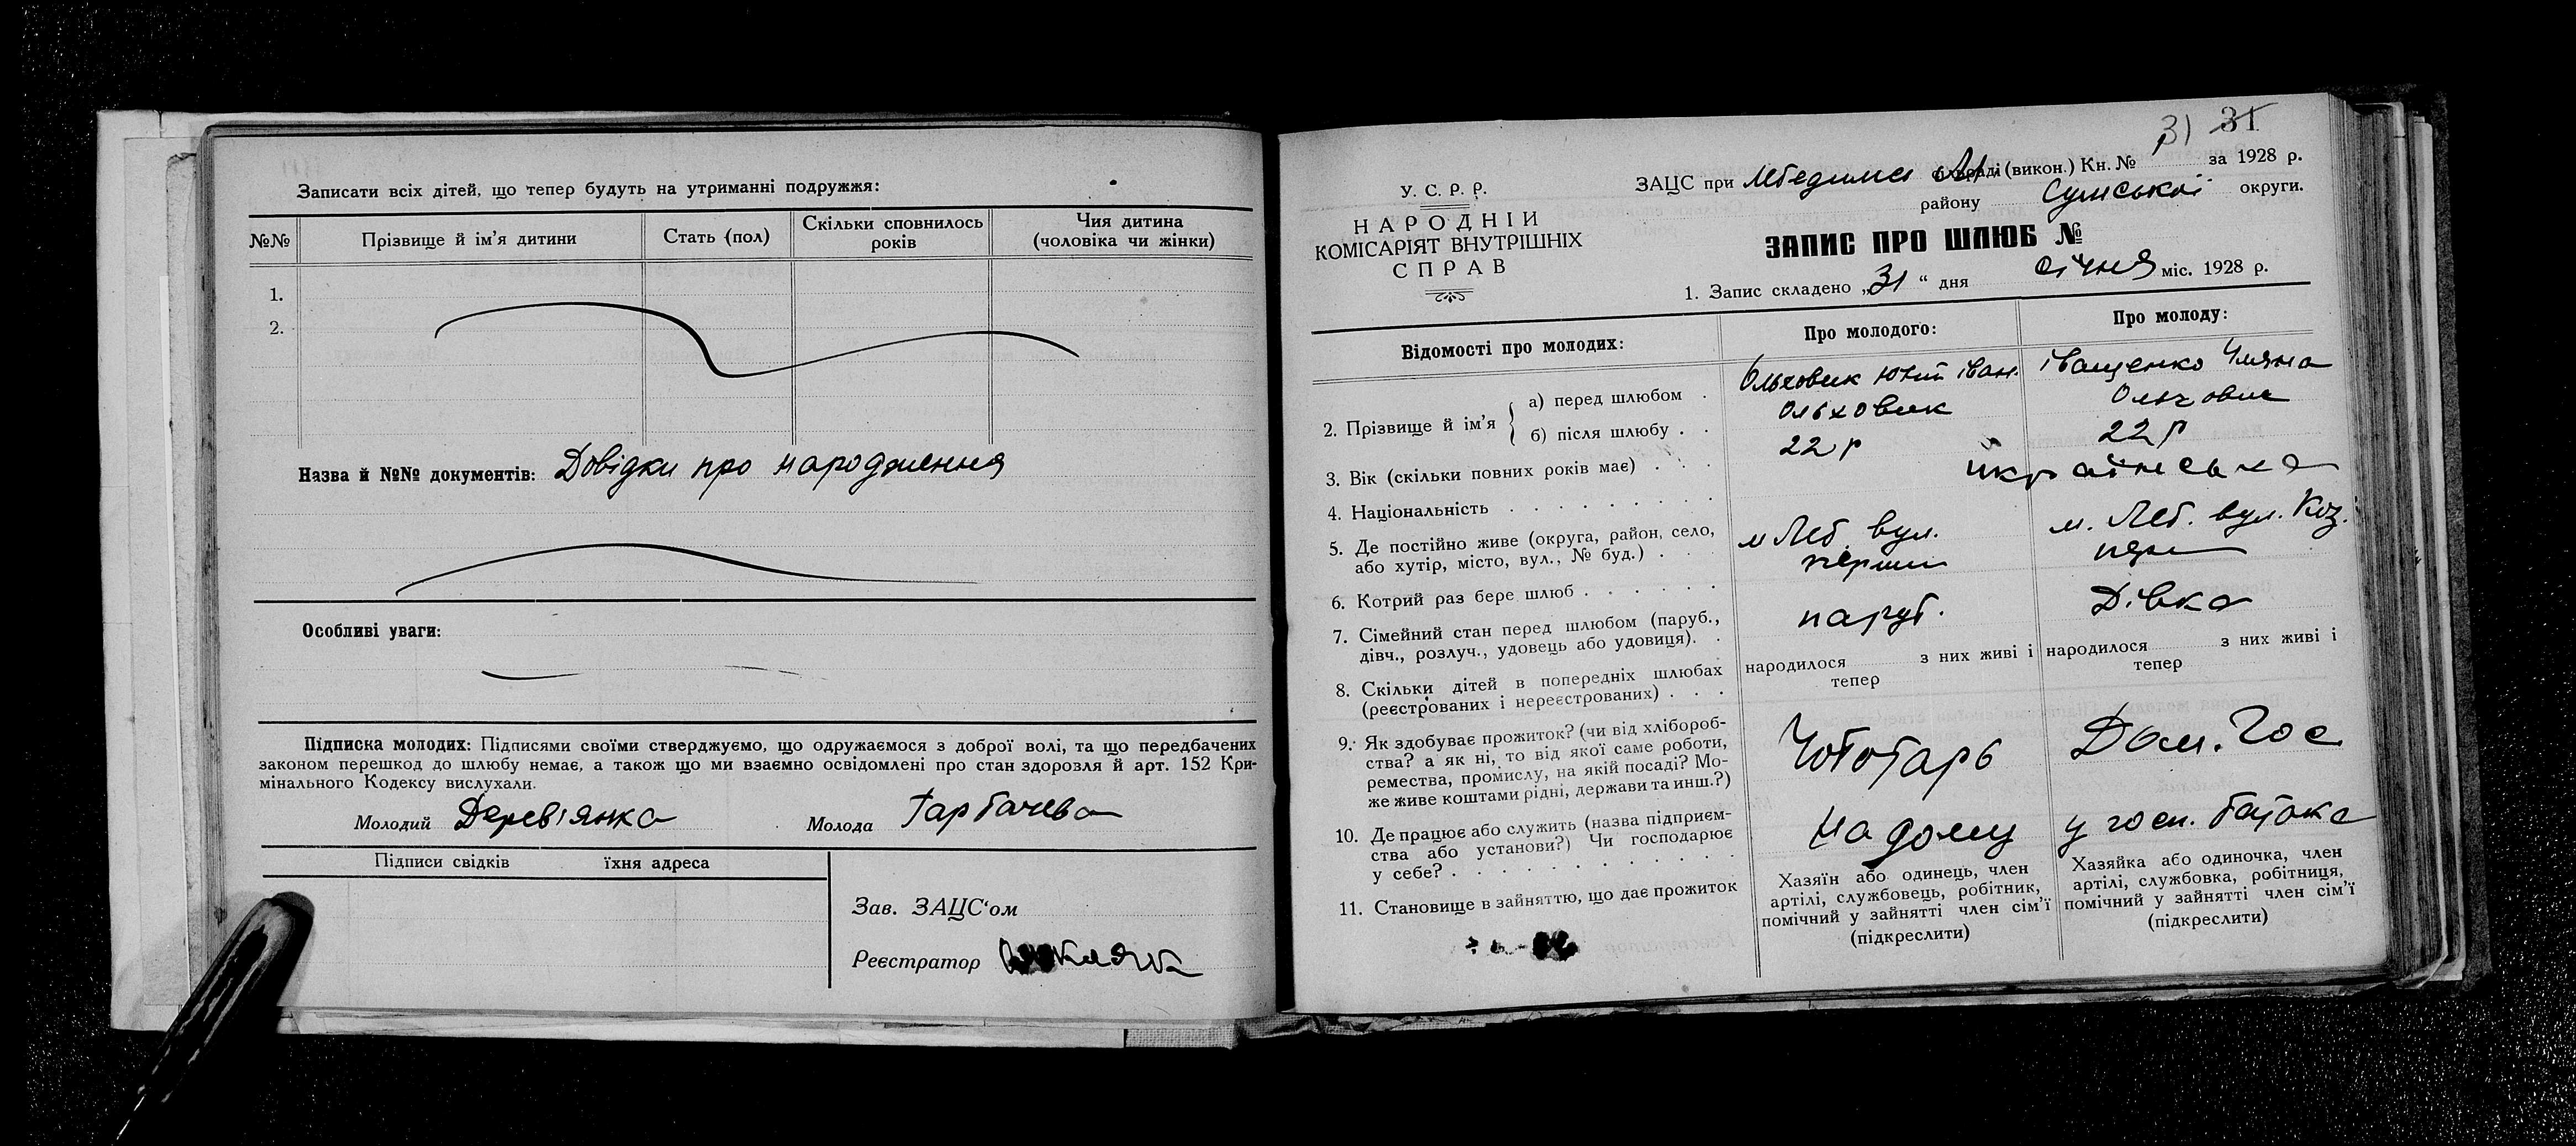 Записати всіх дітей, що тепер будуть на утриманні подружжя:
№№ Прізвище й ім'я дитини Стать (пол) Скільки сповнилось років Чия дитина (чоловіка чи жінки)
1.
2.
Назва й №№ документів: Довідки про народження
Особливі уваги:
Підписка молодих: Підписями своїми стверджуємо, що одружаємося з доброї волі, та що передбачених
законом перешкод до шлюбу немає, а також що ми взаємно освідомлені про стан здоровля й арт. 152 Кри-
мінального Кодексу вислухали.
Молодий Дерев'янко Молода Гарбачева
Підписи свідків їхня адреса
Зав. ЗАЦС'ом
Реєстратор
31 31
У. С. Р. Р.
НАРОДНІЙ
КОМІСАРІЯТ ВНУТРІШНІХ
СПРАВ
ЗАЦС при Лебединск (викон.) Кн. № за 1928 р.
району Сумської округи.
ЗАПИС ПРО ШЛЮБ №
1. Запис складено „31“ дня січня міс. 1928 р.
Відомості про молодих: Про молодого: Про молоду:
2. Прізвище й ім'я
а) перед шлюбом Ольховик Юхим Іван. Іващенко Уляна
б) після шлюбу Ольховик Ольховик
3. Вік (скільки повних років має) 22 р 22 р
4. Національність українська
5. Де постійно живе (округа, район, село, або хутір, місто, вул., № буд.) м Леб. вул. м. Леб. вул. Коз.
6. Котрий раз бере шлюб перший перш
7. Сімейний стан перед шлюбом (паруб., дівч., розлуч., удовець або удовиця). паруб. Дівка
8. Скільки дітей в попередніх шлюбах (реєстрованих і нереєстрованих) народилося з них живі і тепер народилося з них живі і тепер
9. Як здобуває прожиток? (чи від хлібороб-
ства? а як ні, то від якої саме роботи,
ремества, промислу, на якій посаді? Мо-
же живе коштами рідні, держави та инш.?) Чоботарь Дом. Гос
10. Де працює або служить (назва підприєм-
ства або установи?) Чи господарює
у себе? На дому у госп. батька
11. Становище в зайняттю, що дає прожиток
Хазяїн або одинець, член
артілі, службовець, робітник,
помічний у зайнятті член сім'ї
(підкреслити)
Хазяйка або одиночка, член
артілі, службовка, робітниця,
помічний у зайнятті член сім'ї
(підкреслити)